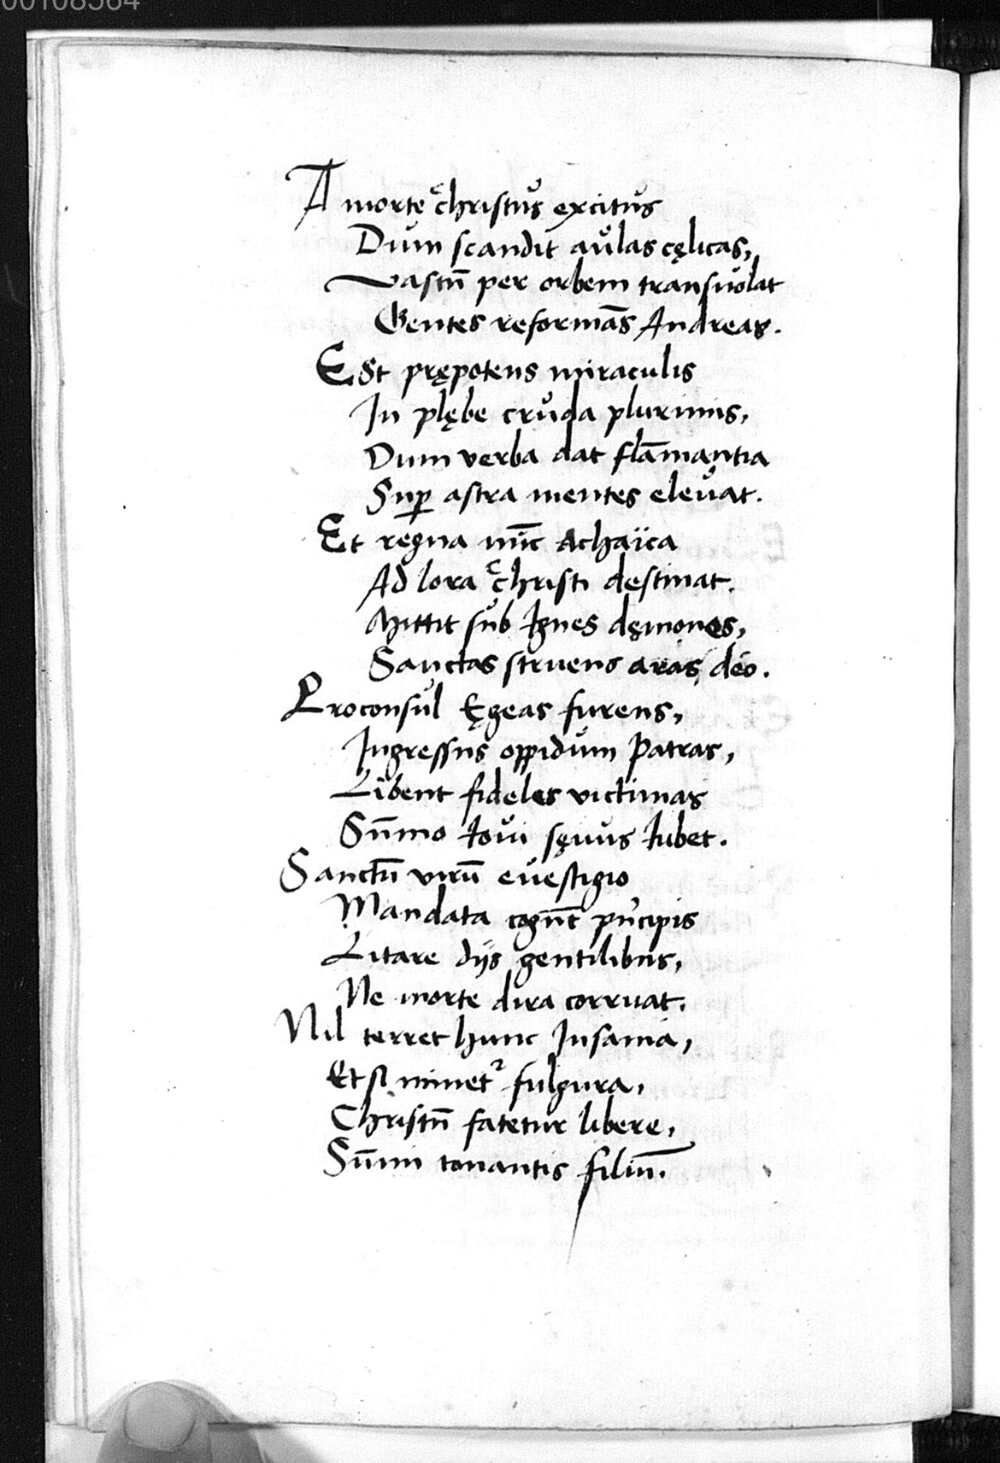 00108564
A morte christus excitus
Dum scandit aulas cęlicas,
Vastū per orbem transuolat
Gentes reformās Andreas.
Est prępotens miraculis
In plębe cruda plurimis,
Dum verba dat flāmantia
Sup̱ astra mentes eleuat.
Et regna nūc Achaïca
Ad lora christi destinat.
Mittit sub Ignes dęmones,
Sanctas struens aras deo.
Proconsul Ęgeas furens,
Ingressus oppidum Patras,
Libent fideles victimas
Sūmo Ioui sęuus Iubet.
Sanctū virū euestigio
Mandata cogūt pͥncipis
Litare dijs gentilibus,
Ne morte dira corruat.
Nil terret hunc Insania,
Et si minet᷑ fulgura,
Christū fatetur libere,
Sūmi tonantis filiū.